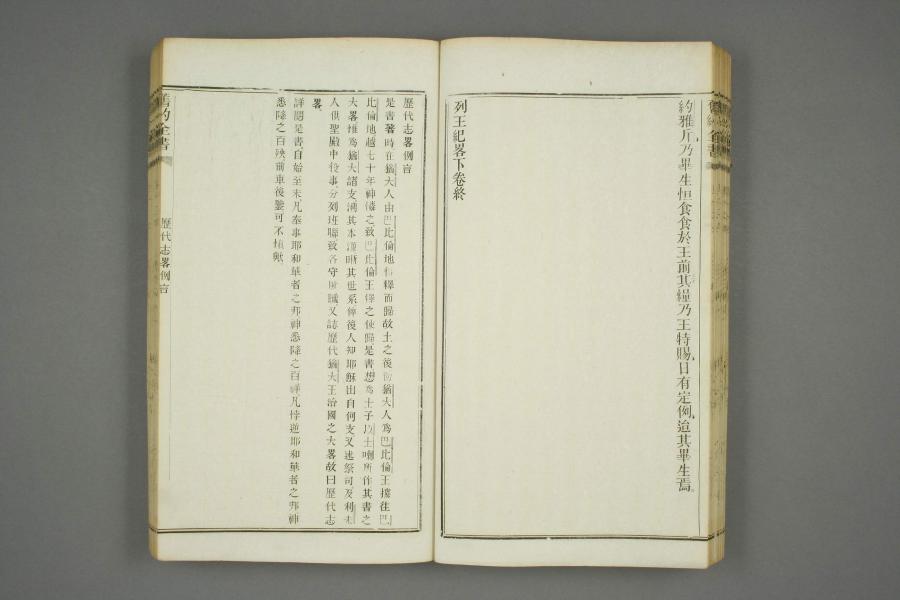 約雅斤乃畢生恒食食於王前其糧乃王特賜日有定例迨其畢生焉
列王紀畧下卷終
歷代志畧例言
是書著時在猶大人由巴比倫地釋而歸故土之後猶大人為巴比倫王擄往巴
比倫地越七十年神憐之致巴比倫王釋之使歸是書想為士子以士喇所作其書之
大畧惟為猶大諸支溯其本清晰其世系俾後人知耶穌出自何支又述祭司及利未
人供聖殿中役事分列班聯致各守厥職又誌歷代猶大王治國之大畧故曰歷代志
畧
詳閱是書自始至末凡奉事耶和華者之邦神悉降之百祥凡悖逆耶和華者之邦神
悉降之百殃前車後鑒可不慎歟
舊約全書
歷代志畧例言